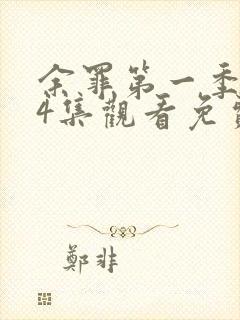 余罪第一季
4集觀看免
鄭非